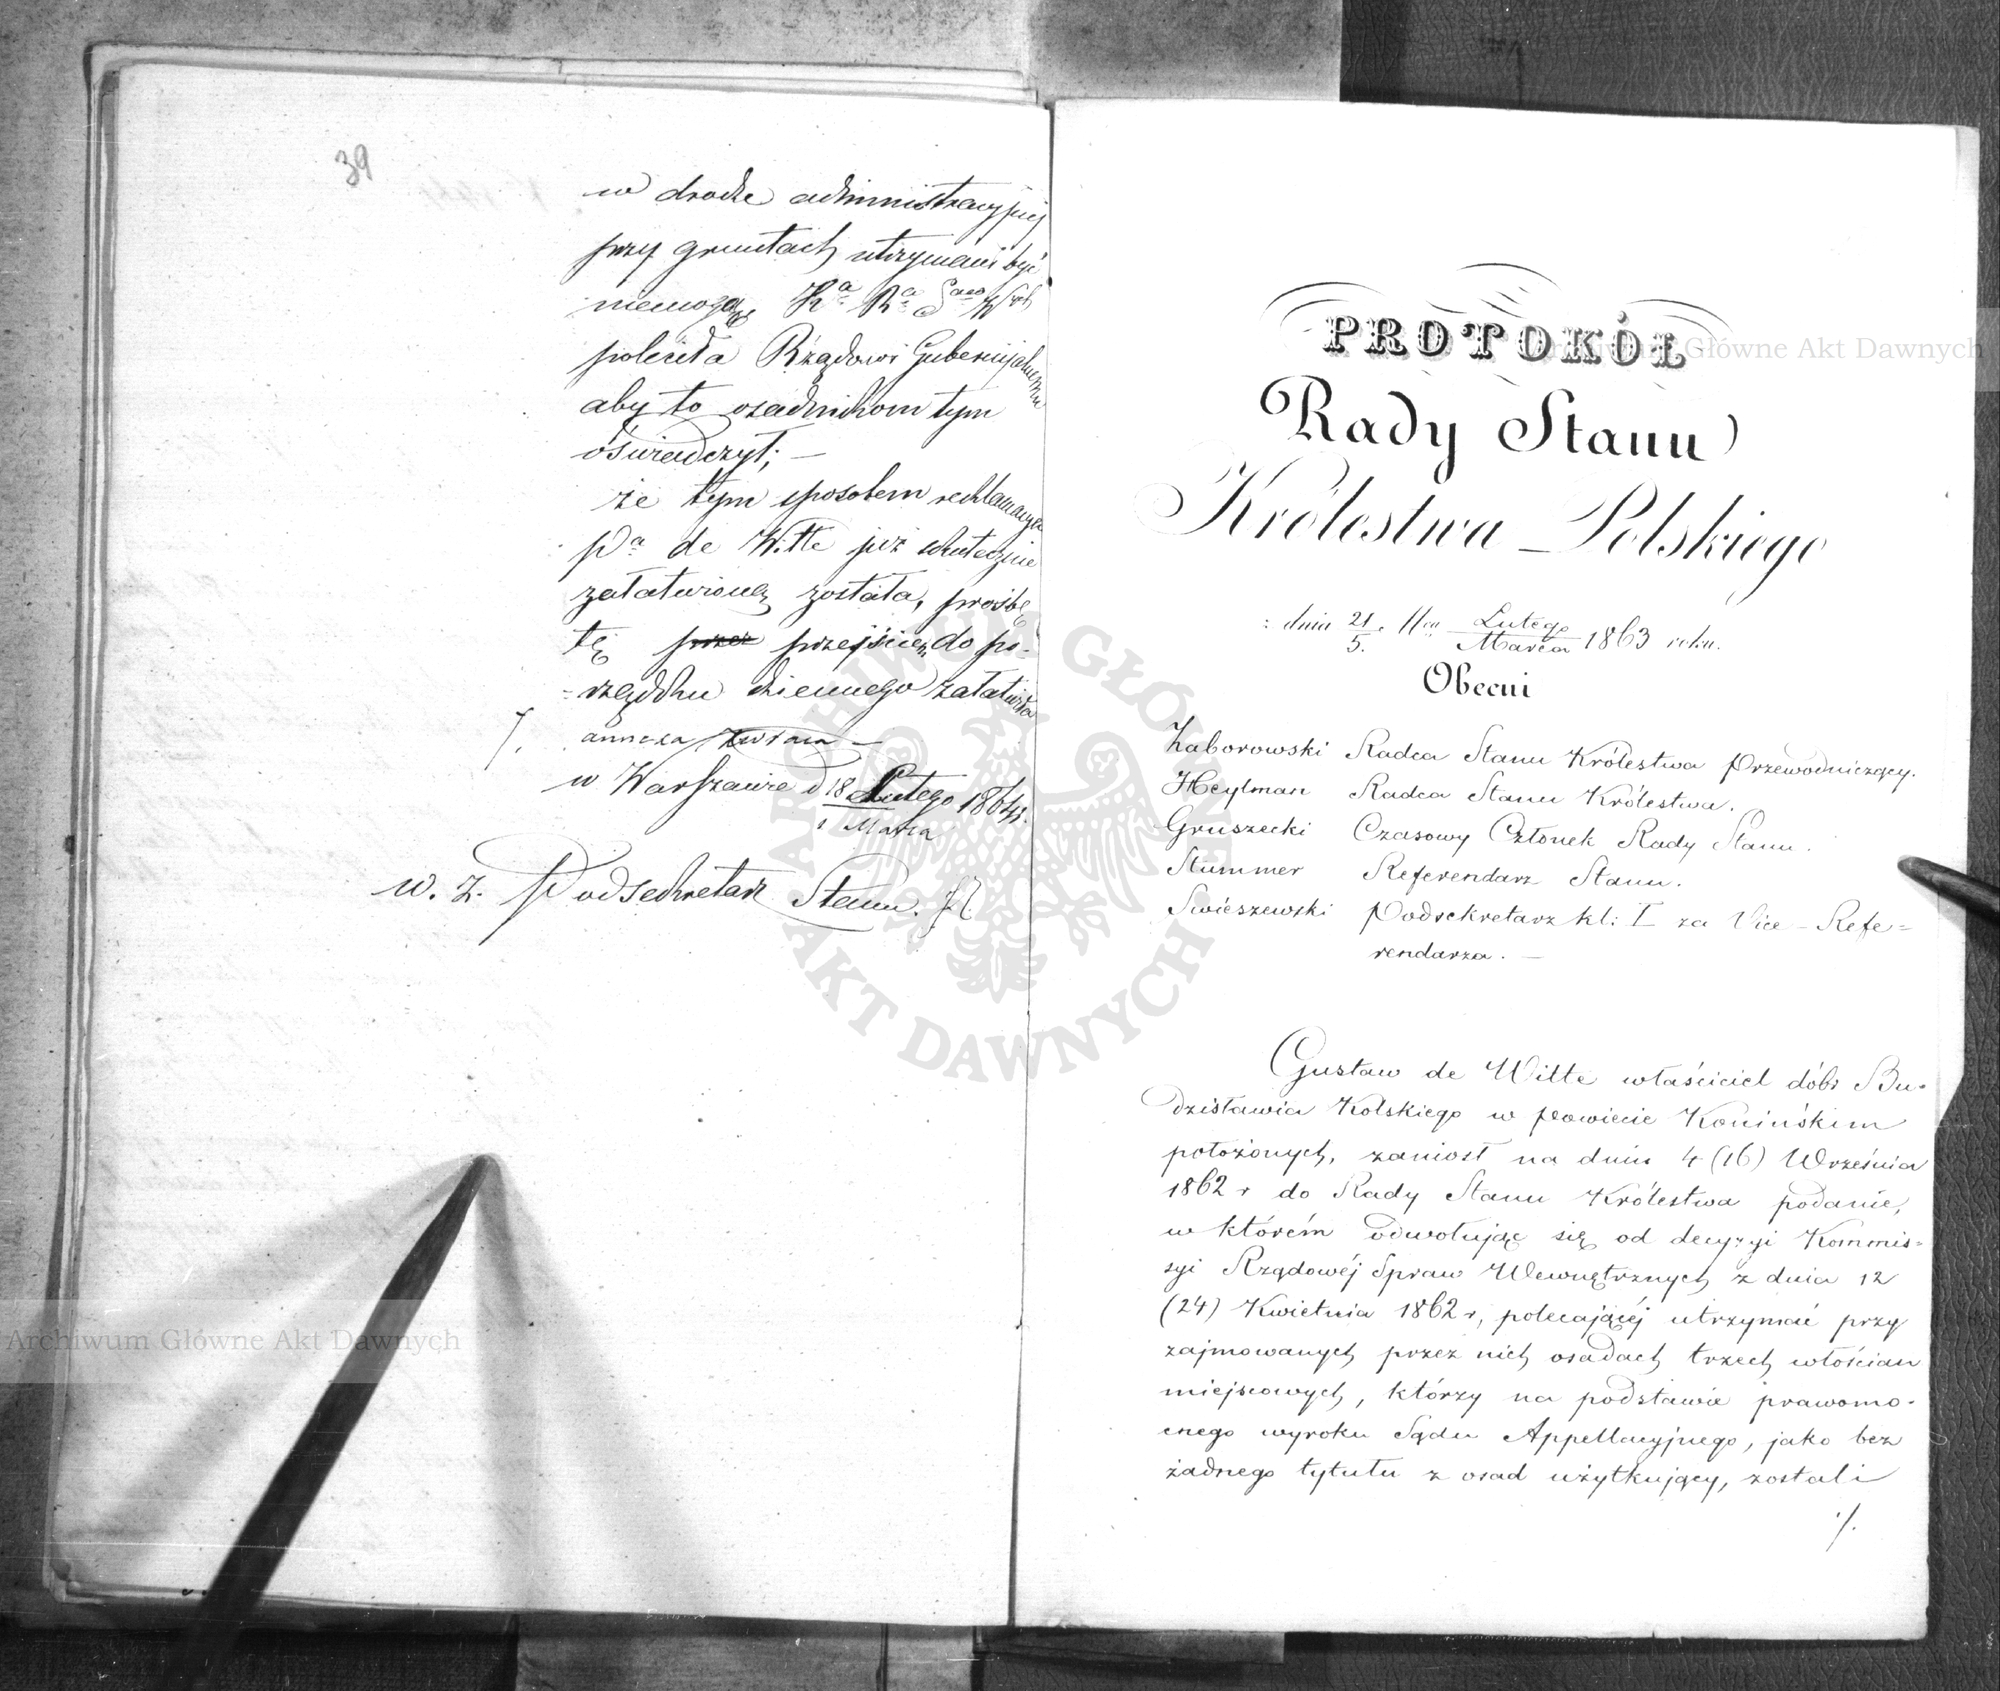 39
w drodze administracyjnej
przy gruntach utrzymani być
niemogą, Ka Ra Spraw Wnych
poleciła Rządowi Gubernijalnemu
aby to osadnikom tym
oświadczył; —
że tym sposobem reklamacya
Pa de Witte już skutecznie
załatwioną została, prośbę
tę przez przejściem do po-
-rządku dziennego załatwiła
annexa zwraca —
w Warszawie d 18 Lutego 1864 r.
1 Marca
w. z. Podsekretarz Stanu.
PROTOKÓŁ
Rady Stanu
Królestwa Polskiego
dnia 21/5. Lutego/Marca 1863 roku.
Obecni
Zaborowski Radca Stanu Królestwa Przewodniczący.
Heylman Radca Stanu Królestwa.
Gruszecki Czasowy Członek Rady Stanu.
Stummer Referendarz Stanu.
Swieszewski Podsekretarz kl: I za Vice-Refe=
rendarza. —
Gustaw de Witte właściciel dóbr Bu-
dzisławia Kolskiego w Powiecie Konińskim
położonych, zaniosł na dniu 4 (16) Września
1862 r do Rady Stanu Królestwa podanie,
w którém odwołując się od decyzyi Kommis=
syi Rządowéj Spraw Wewnętrznych z dnia 12
(24) Kwietnia 1862 r, polecającéj utrzymać przy
zajmowanych przez nich osadach trzech włościan
miejscowych, którzy na podstawie prawomo-
cnego wyroku Sądu Appellacyjnego, jako bez
żadnego tytułu z osad użytkujący, zostali
./.
Archiwum Główne Akt Dawnych
ARCHIWUM GŁÓWNE AKT DAWNYCH
Archiwum Główne Akt Dawnych